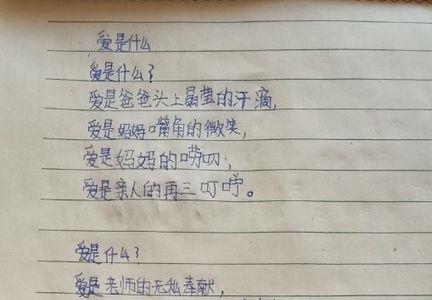 爱是什么
爱是什么?
爱是爸爸头上晶莹的汗滴,
爱是妈妈嘴角的微笑,
爱是妈妈的唠叨,
爱是亲人的再三叮咛。
爱是什么?
爱是老师的无私奉献,